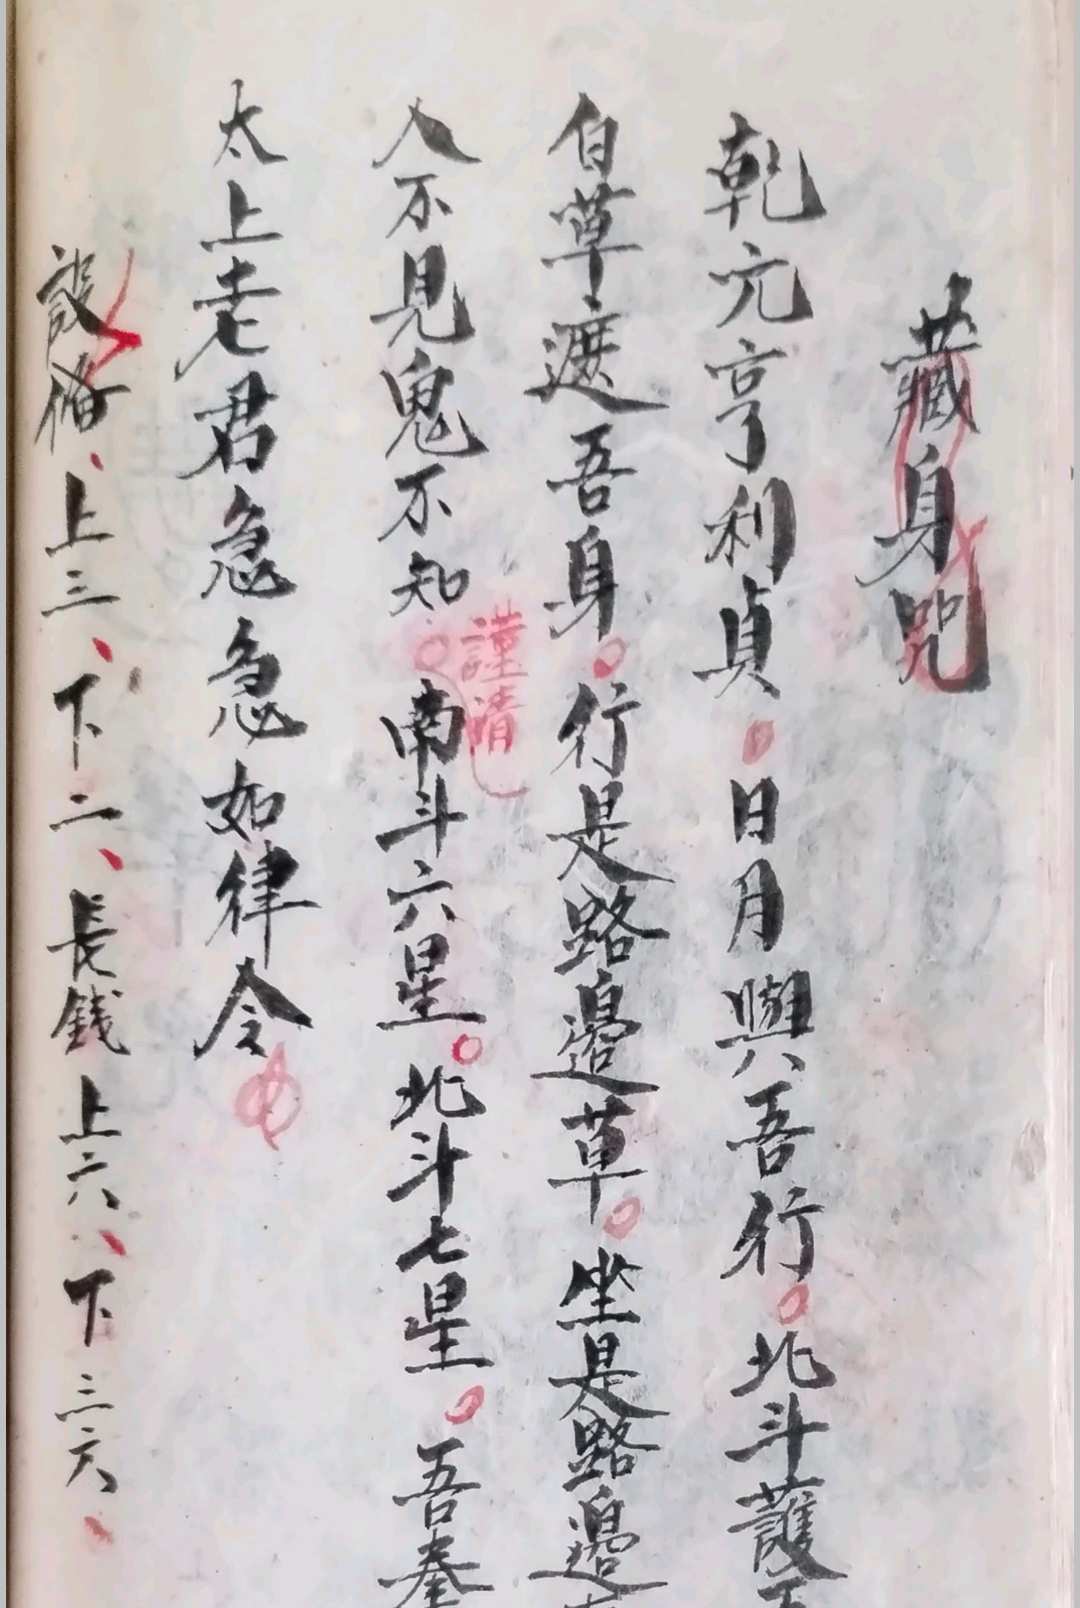 藏身咒
乾元亨利貞日月與吾行北斗護
白草遮吾身行是路邉草坐是路邉
人不見鬼不知南斗六星北斗七星吾奉
謹請
太上老君急急如律令
設俻上三下二長錢上六下三六